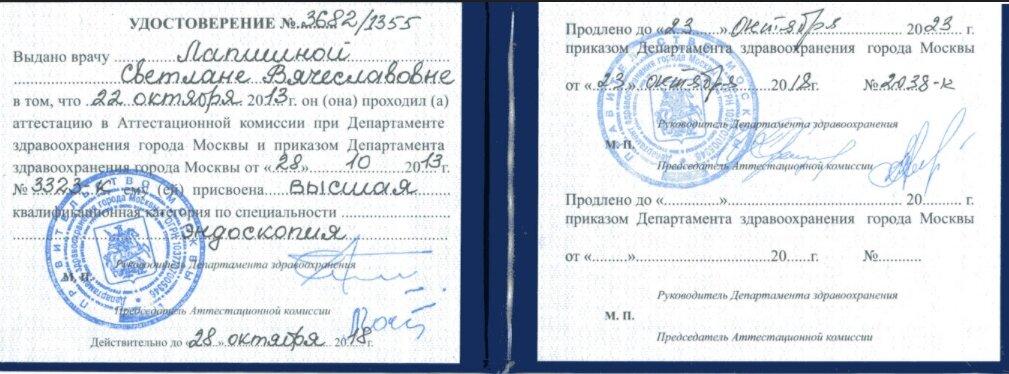 УДОСТОВЕРЕНИЕ № 3682/1355
Выдано врачу Лапшиной
Светлане Вячеславовне
в том, что 22 октября 2013 г. он (она) проходил (а)
аттестацию в Аттестационной комиссии при Департаменте
здравоохранения города Москвы и приказом Департамента
здравоохранения города Москвы от «28» 10 2013 г.
№ 3323-к ему (ей) присвоена высшая
квалификационная категория по специальности
эндоскопия
Руководитель Департамента здравоохранения
М. П.
Председатель Аттестационной комиссии
Действительно до «28» октября 2018 г.
Продлено до «23» октября 2023 г.
приказом Департамента здравоохранения города Москвы
от «23» октября 2018 г. № 2038-к
Руководитель Департамента здравоохранения
М. П.
Председатель Аттестационной комиссии
Продлено до «............» 20........ г.
приказом Департамента здравоохранения города Москвы
от «.........» 20......г. №...........
Руководитель Департамента здравоохранения
М. П.
Председатель Аттестационной комиссии